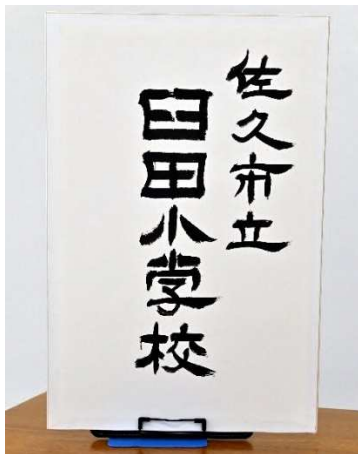 佐久市立
臼田小学校